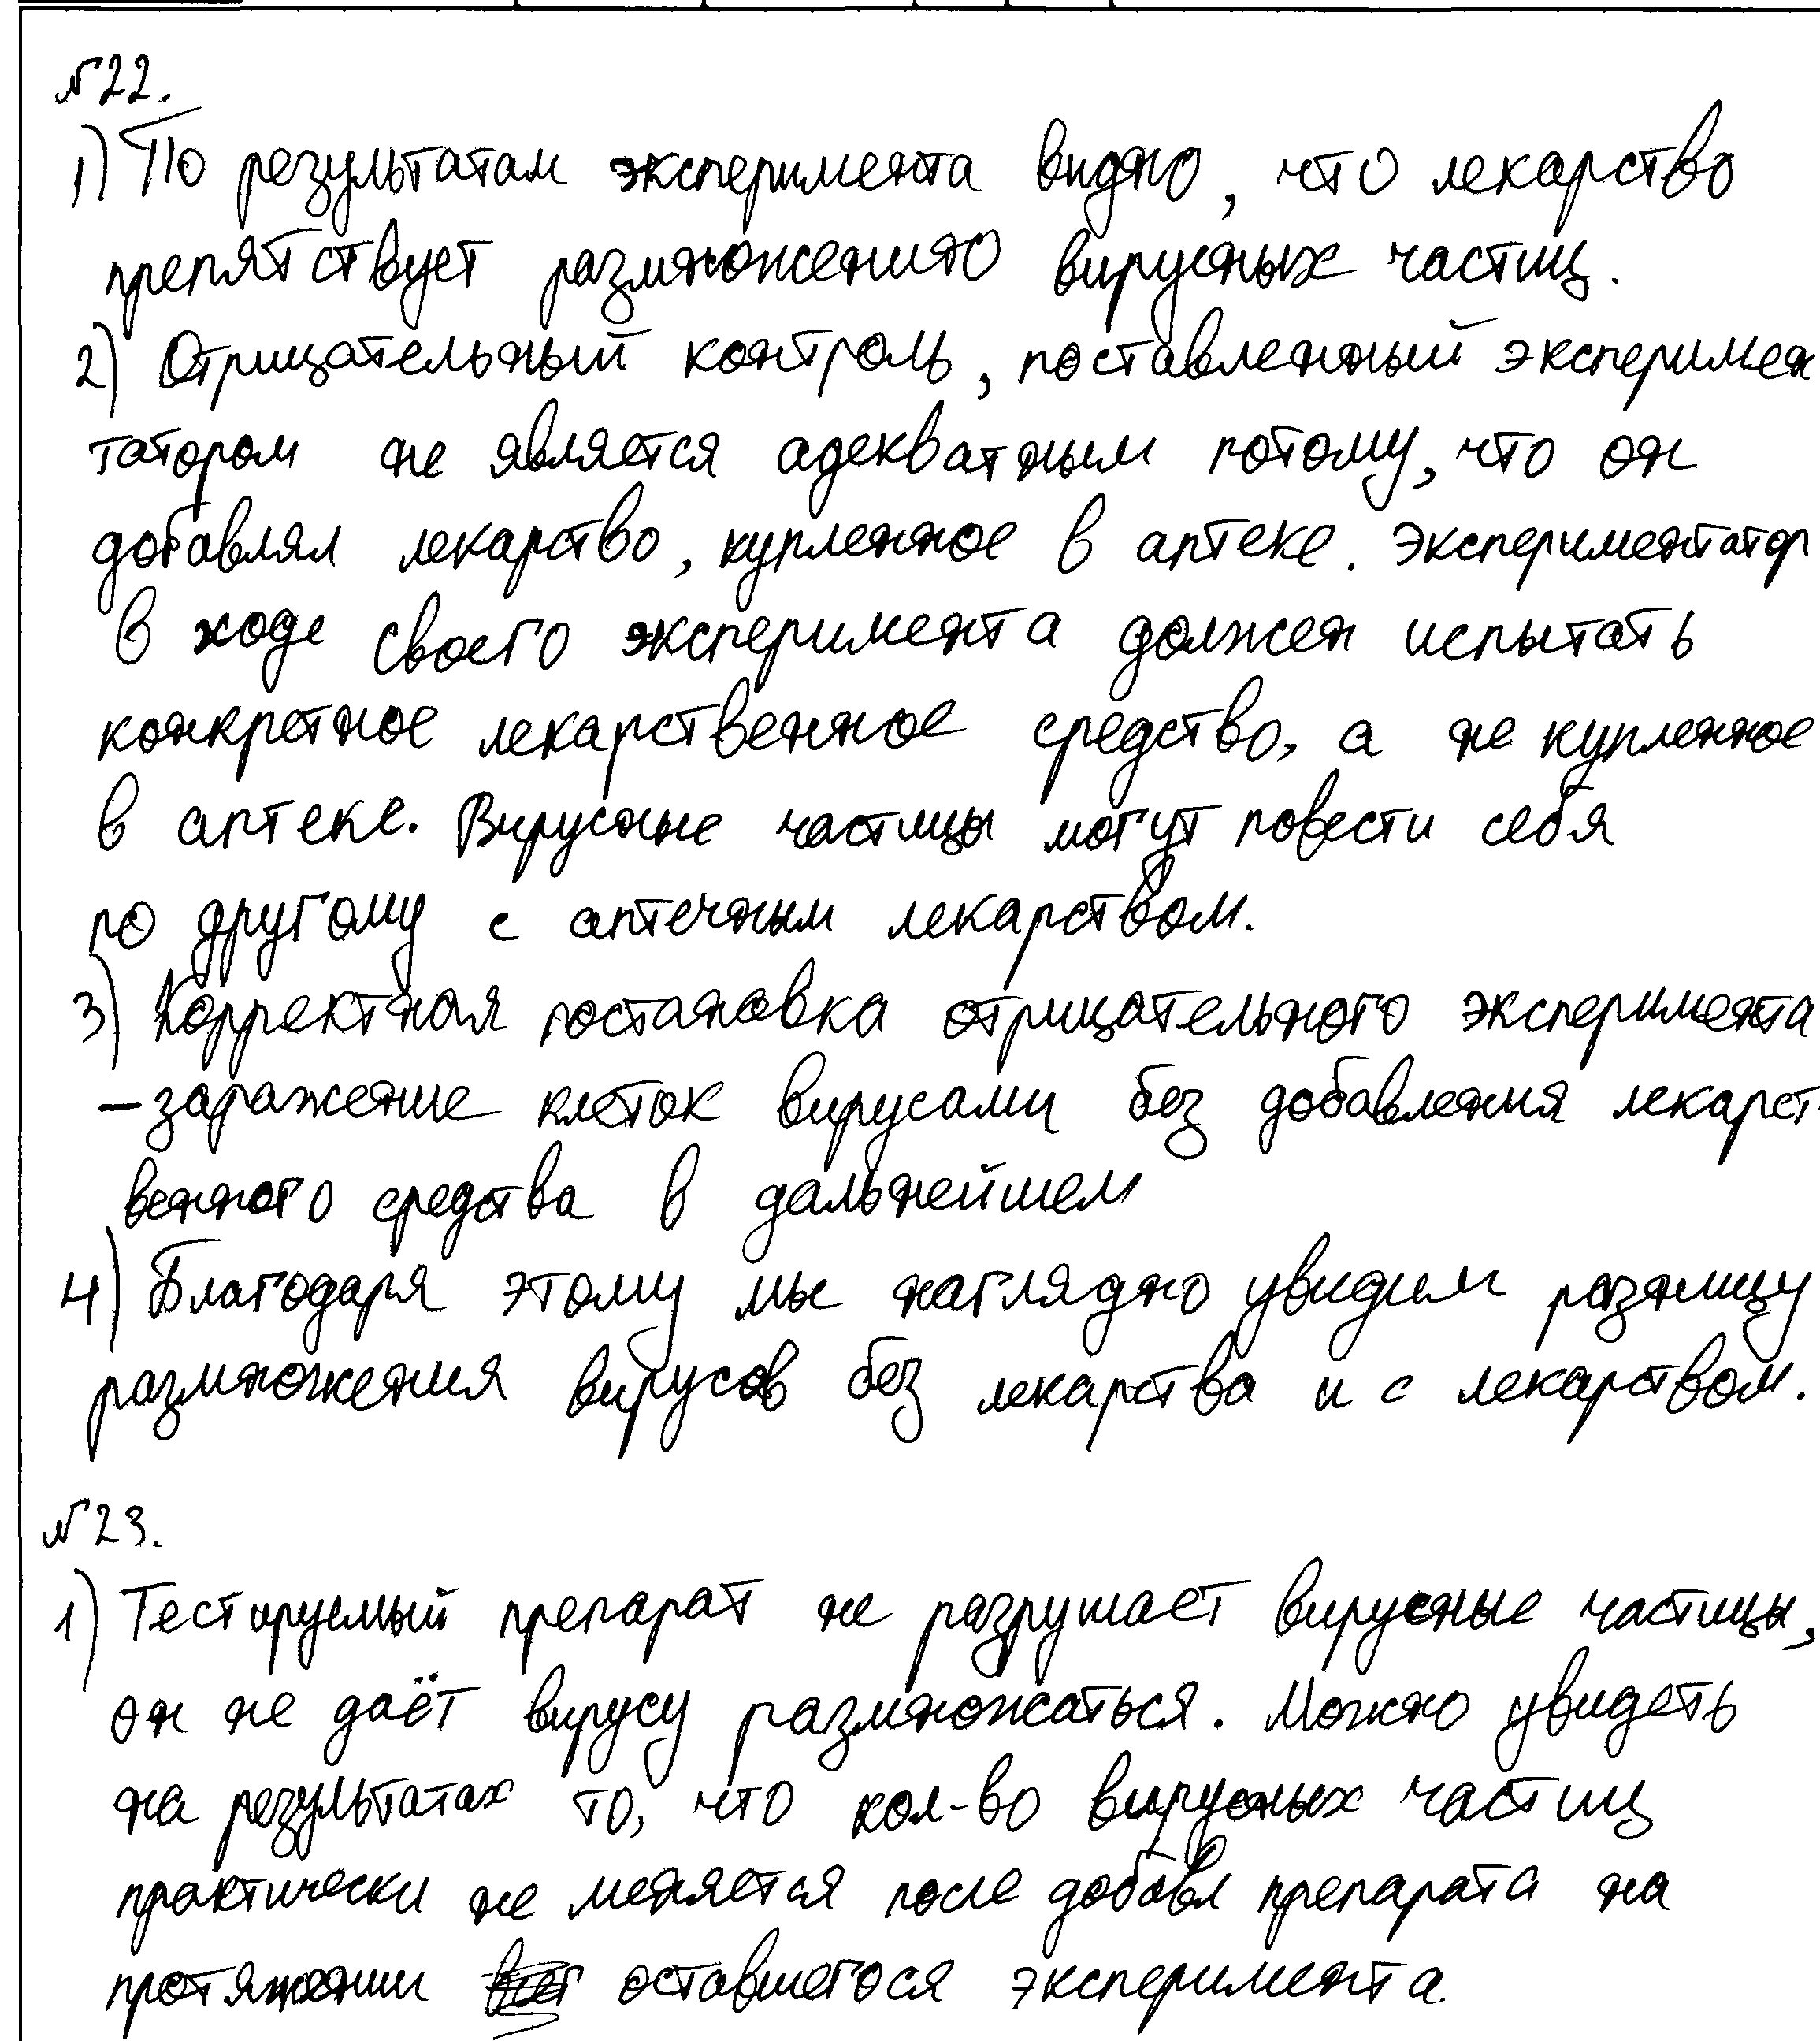 №22.
1) По результатам эксперимента видно, что лекарство
препятствует размножению вирусных частиц.
2) Отрицательный контроль, поставленный эксперимен
татором не является адекватным потому, что он
добавлял лекарство, купленное в аптеке. Экспериментатор
в ходе своего эксперимента должен испытать
конкретное лекарственное средство, а не купленное
в аптеке. Вирусные частицы могут повести себя
по другому с аптечным лекарством.
3) Корректная постановка отрицательного эксперимента
– заражение клеток вирусами без добавления лекарст-
венного средства в дальнейшем
4) Благодаря этому мы наглядно увидим разницу
размножения вирусов без лекарства и с лекарством.
№23.
1) Тестируемый препарат не разрушает вирусные частицы,
он не даёт вирусу размножаться. Можно увидеть
на результатах то, что кол-во вирусных частиц
практически не меняется после добавл препарата на
протяжении оставшегося эксперимента.